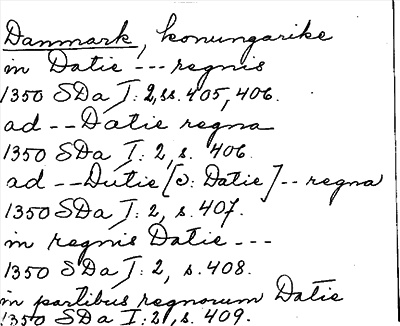 Danmark, konungarike
in Datie --- regnis
1350 SDa I: 2, ss. 405, 406.
ad -- Datie regna
1350 SDa I: 2, s. 406.
ad -- Dutie [ɔ: Datie] -- regna
1350 SDa I: 2, s. 407.
in regnis Datie ---
1350 SDa I: 2, s. 408.
in partibus regnorum Datie
1350 SDa I: 2, s. 409.